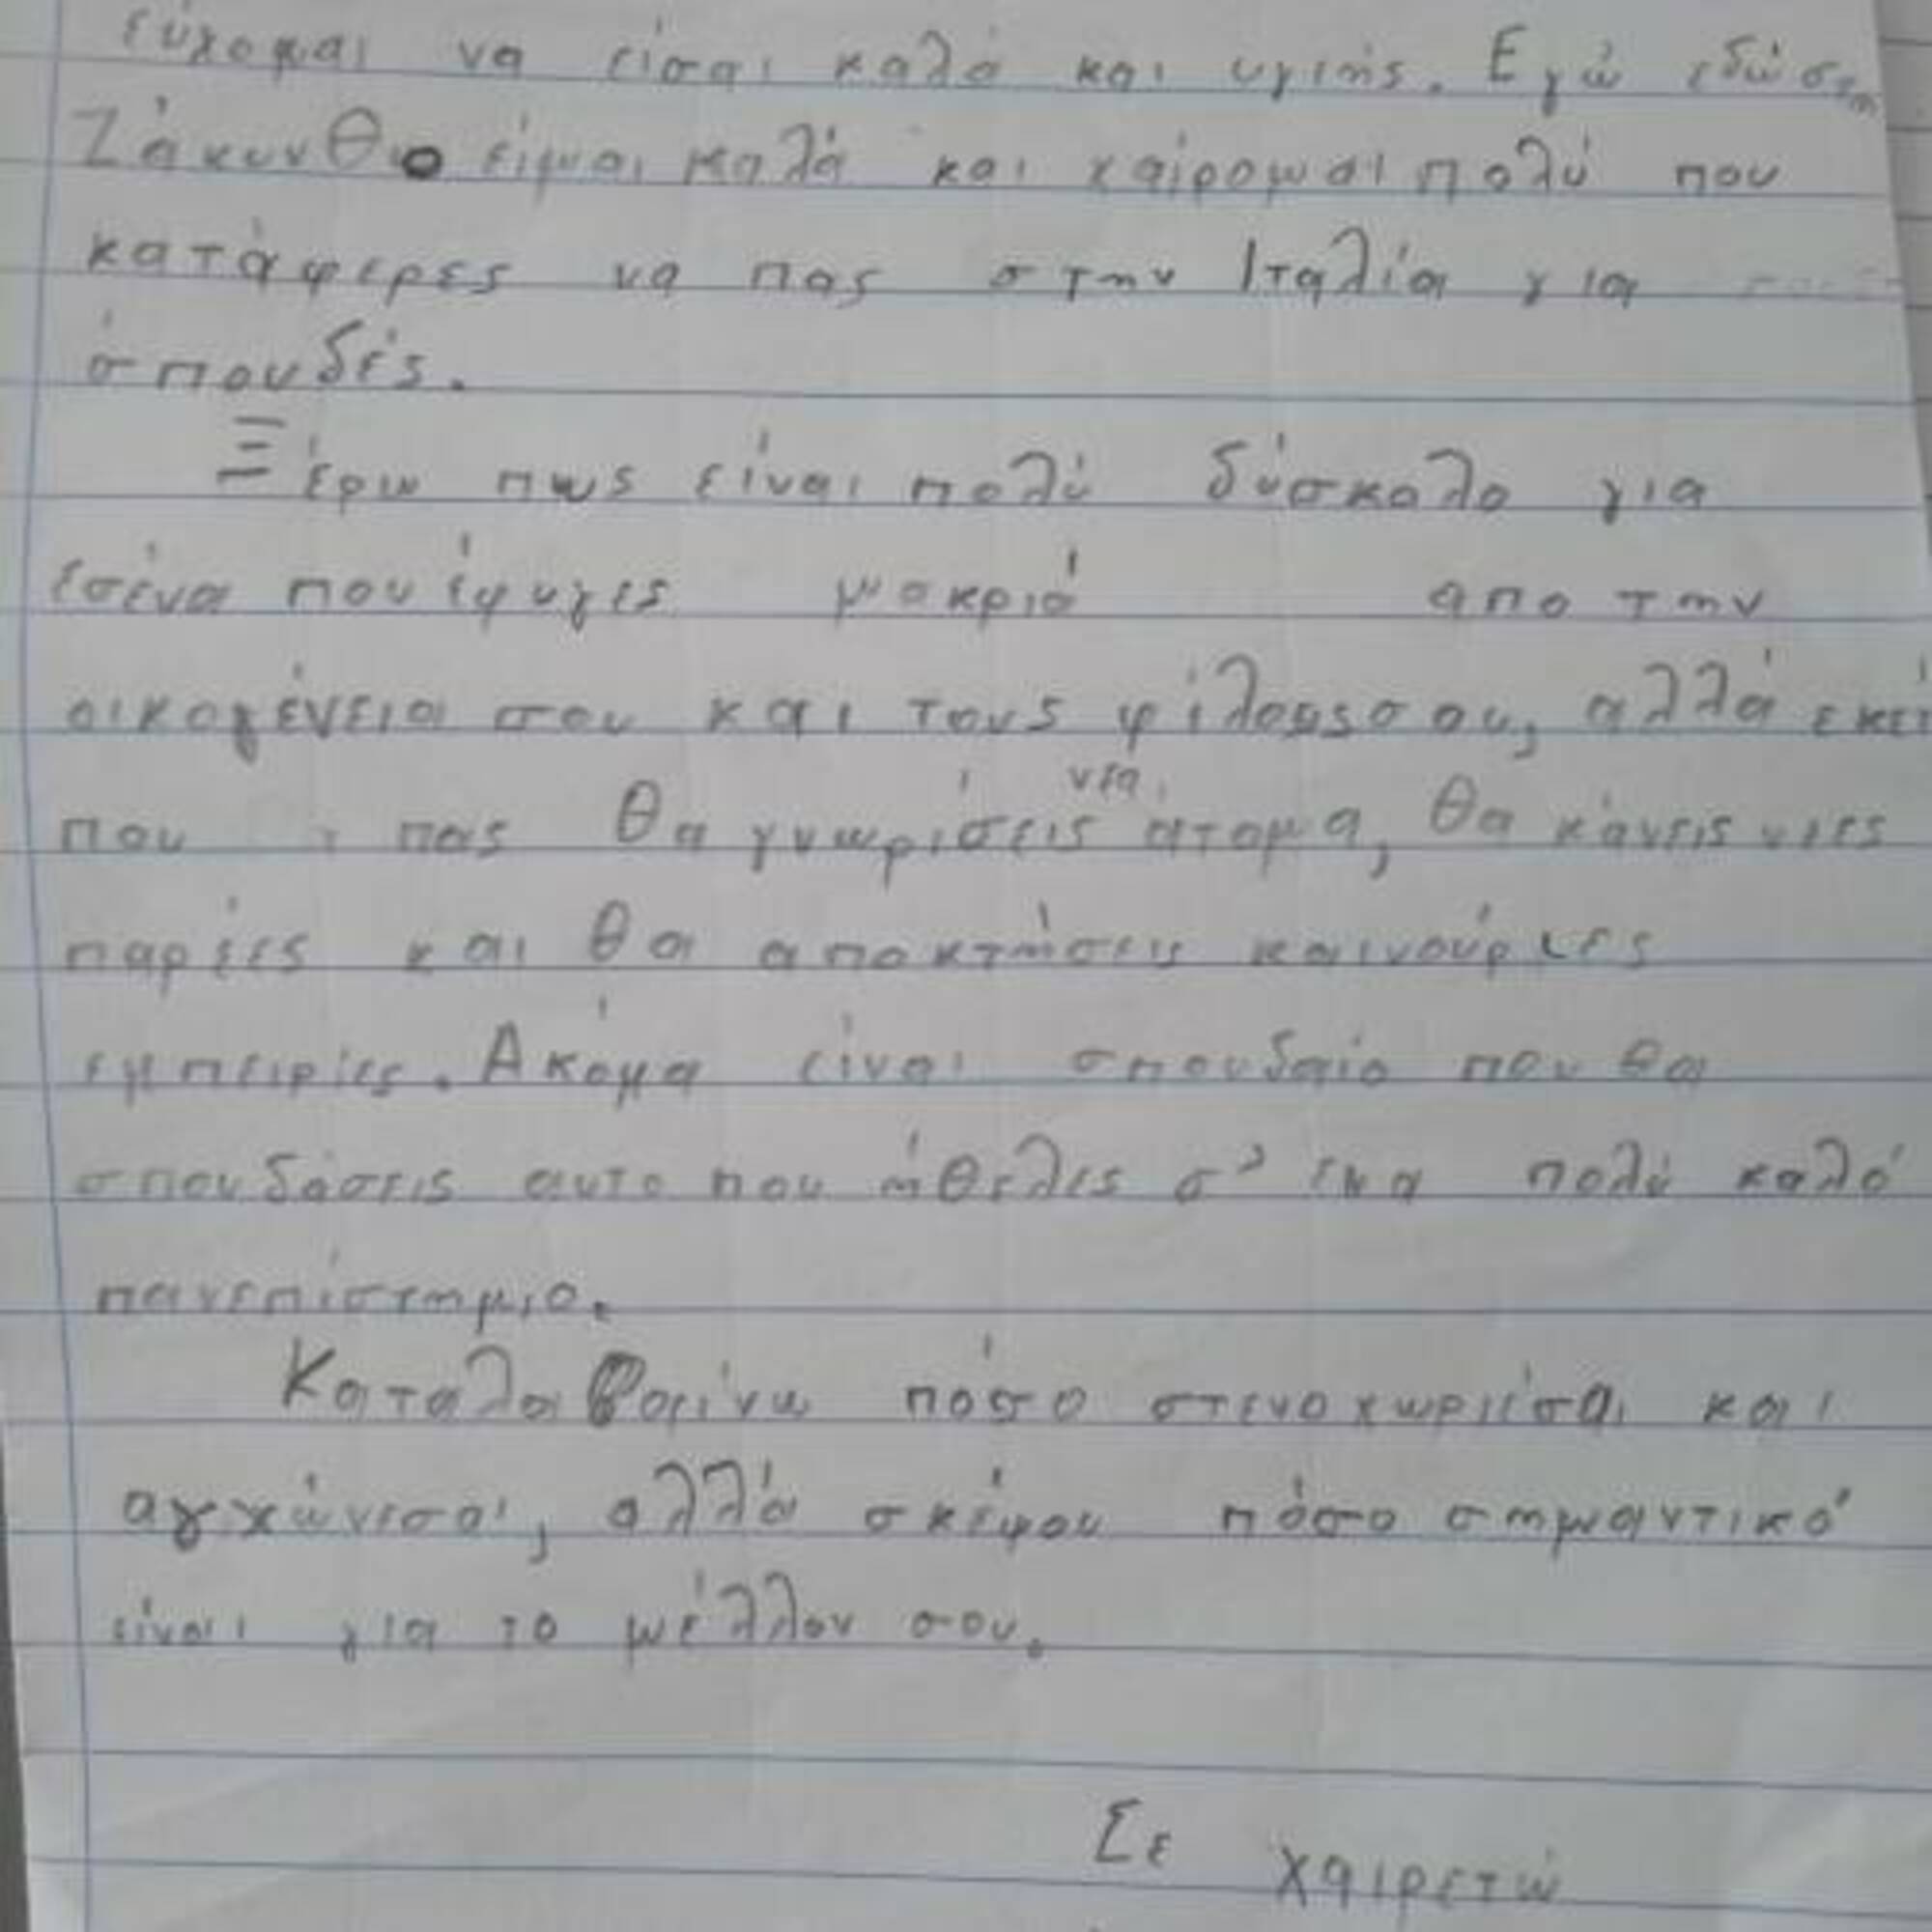 εύχομαι να είσαι καλά και υγιής. Εγώ εδώ στη
Ζάκυνθο είμαι καλά και χαίρομαι πολύ που
κατάφερες να πας στην Ιταλία για
σπουδές.
Ξέρω πως είναι πολύ δύσκολο για
εσένα που έφυγες μακριά απο την
οικογένεια σου και τους φίλους σου, αλλά εκεί
που πας θα γνωρίσεις νέα άτομα, θα κάνεις νέες
παρέες και θα αποκτήσεις καινούριες
εμπειρίες. Ακόμα είναι σπουδαίο που θα
σπουδάσεις αυτο που ήθελες σ' ένα πολύ καλό
πανεπίστημιο.
Καταλαβαίνω πόσο στεναχωριέσαι και
αγχώνεσαι, αλλά σκέψου πόσο σημαντικό
είναι για το μέλλον σου.
Σε χαιρετώ